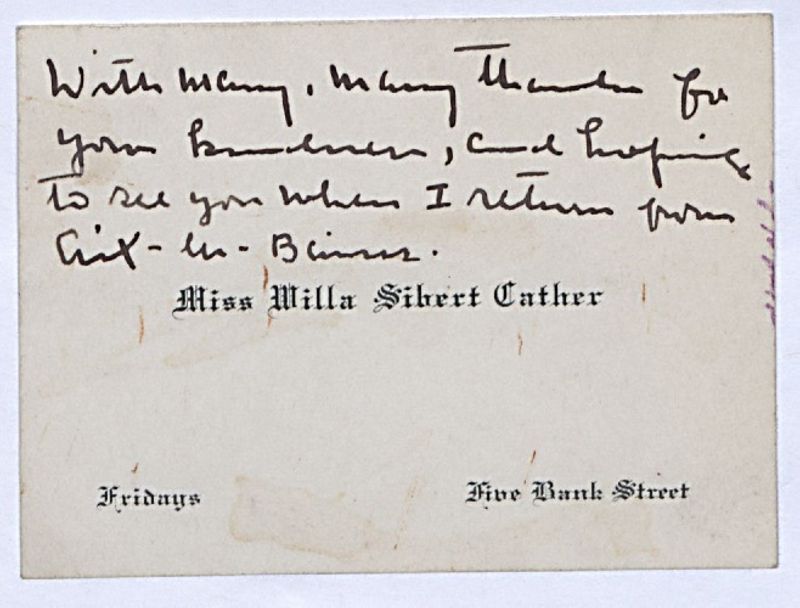 With many, many thanks for
your kindness, and hoping
to see you when I return from
Aix-les-Bains.
Miss Willa Sibert Cather
Fridays
Five Bank Street